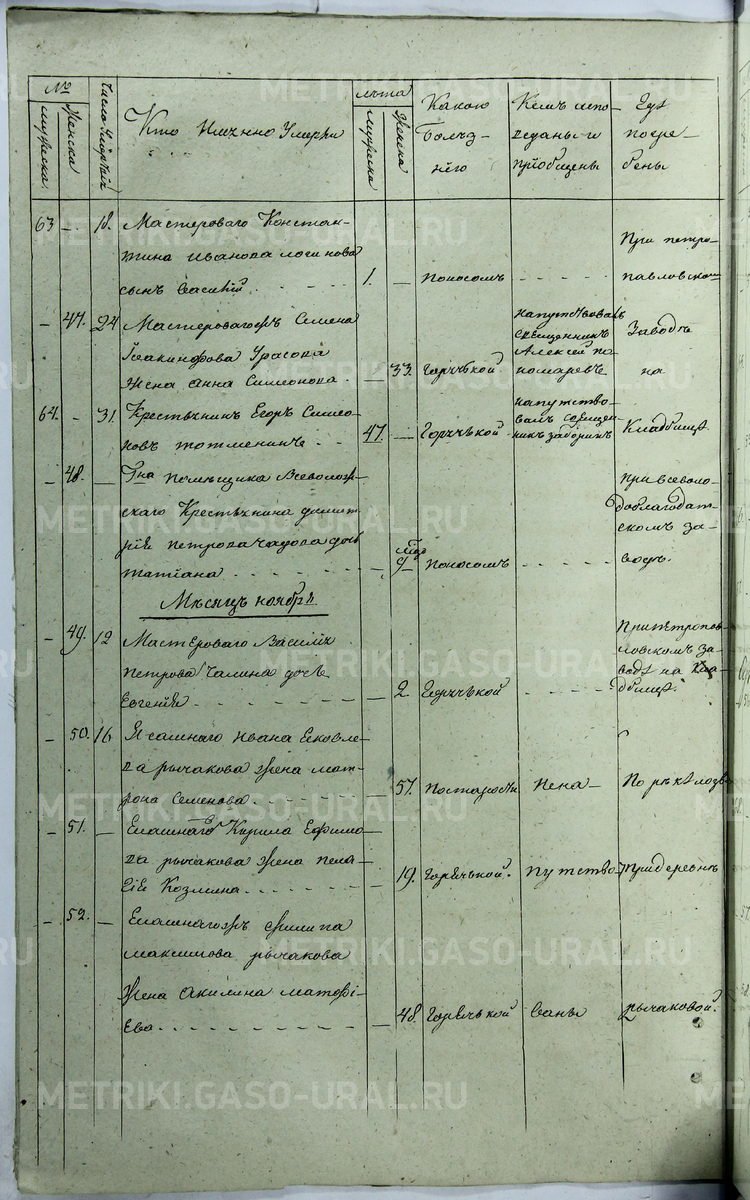 №
мужеска
Женска
Число Умертвій
Кто Имянно Умерли
лѣта
мужеска
Женска
Какою
Болѣз-
нію
Кемъ испо-
веданы и
пріобщены
Гдѣ
погре-
бены
63 - 18. Мастероваго Констан-
тина Иванова логинова
сынъ Василій 1. — поносомъ При петро-
павловском
- 47. 24 Мастероваго Семена
Іоакинфова Урасова
Жена Анна Симеонова - 33. Горячкой.
напутствовалъ
священникъ
Алексей по-
номаревъ
Заводѣ
на
64. - 31. Крестьянинъ Егоръ Симео-
новъ тотменинъ 47. — Горячькой
напутство-
валъ священ-
никъ
Кладбищѣ
- 48. — Гна помѣщика Всеволож-
скаго Крестьянина Димит-
рія петрова дочь
татіана — поносомъ
при всеволо-
доблагодат-
скомъ за-
водѣ.
Мѣсяцъ ноябрь
- 49. 12 Мастероваго Василія
петрова Чалина дочь
Евгенія — 2. Горячькой
При петропав-
ловскомъ за-
водѣ на кла-
дбищѣ.
- 50. 16 Ясашнаго Ивана Ековле-
ва рычакова жена мат-
рона Семенова — 57. по старости Нена- По рѣкѣ лозвѣ
- 51. — Ясашнаго Кирила Ефимо-
ва рычакова жена пела-
гія Козмина — 19. Горячькой. путство- При деревнѣ
- 52. — филипа
максимова рычакова
Жена Акилина матфі-
ева — 48. Горячькой ваны рычаковой.
METRIKI.GASO-URAL.RU